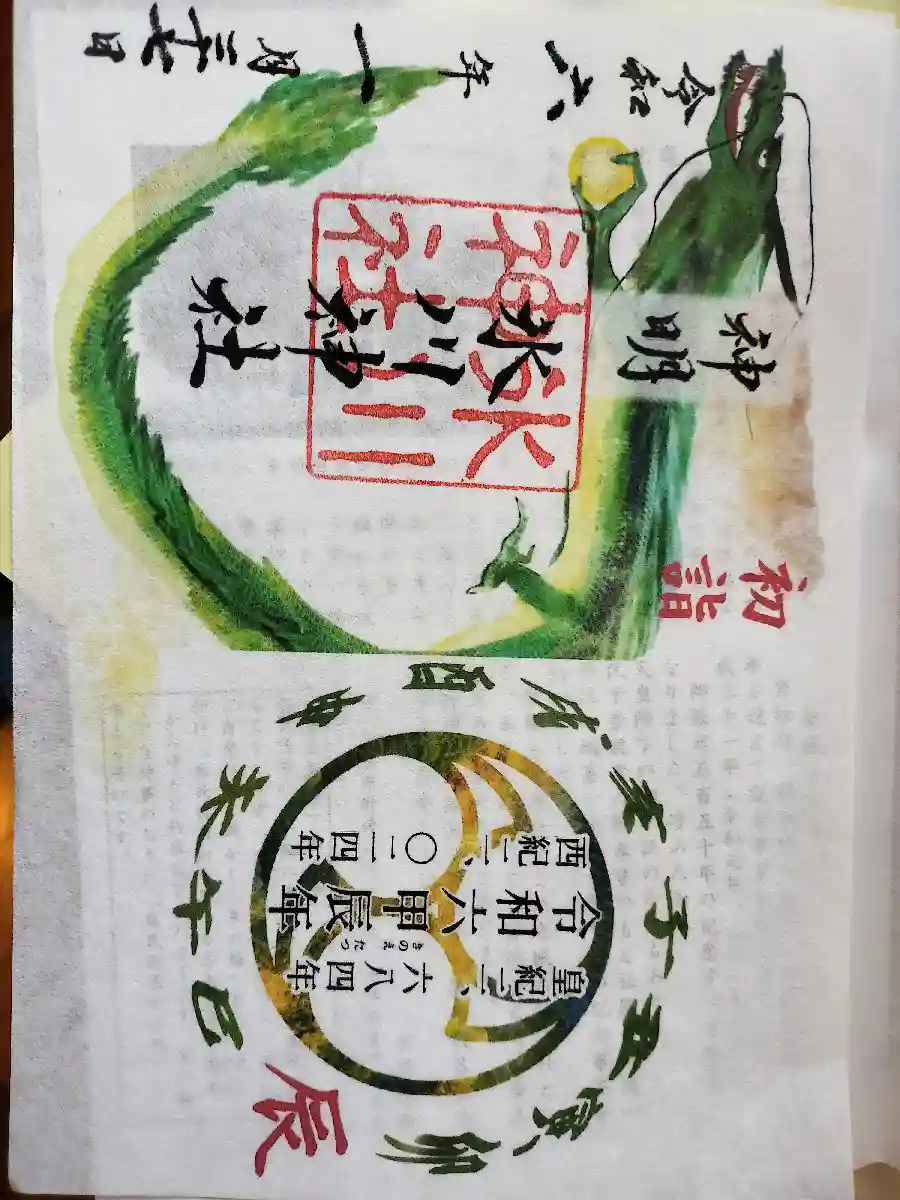 初詣
神明
氷川神社
氷川
神社
令和六年一月二十七日
子
丑
寅
卯
辰
巳
午
未
申
酉
戌
亥
皇紀二、六八四年
令和六甲辰年
きのえたつ
西紀二、〇二四年